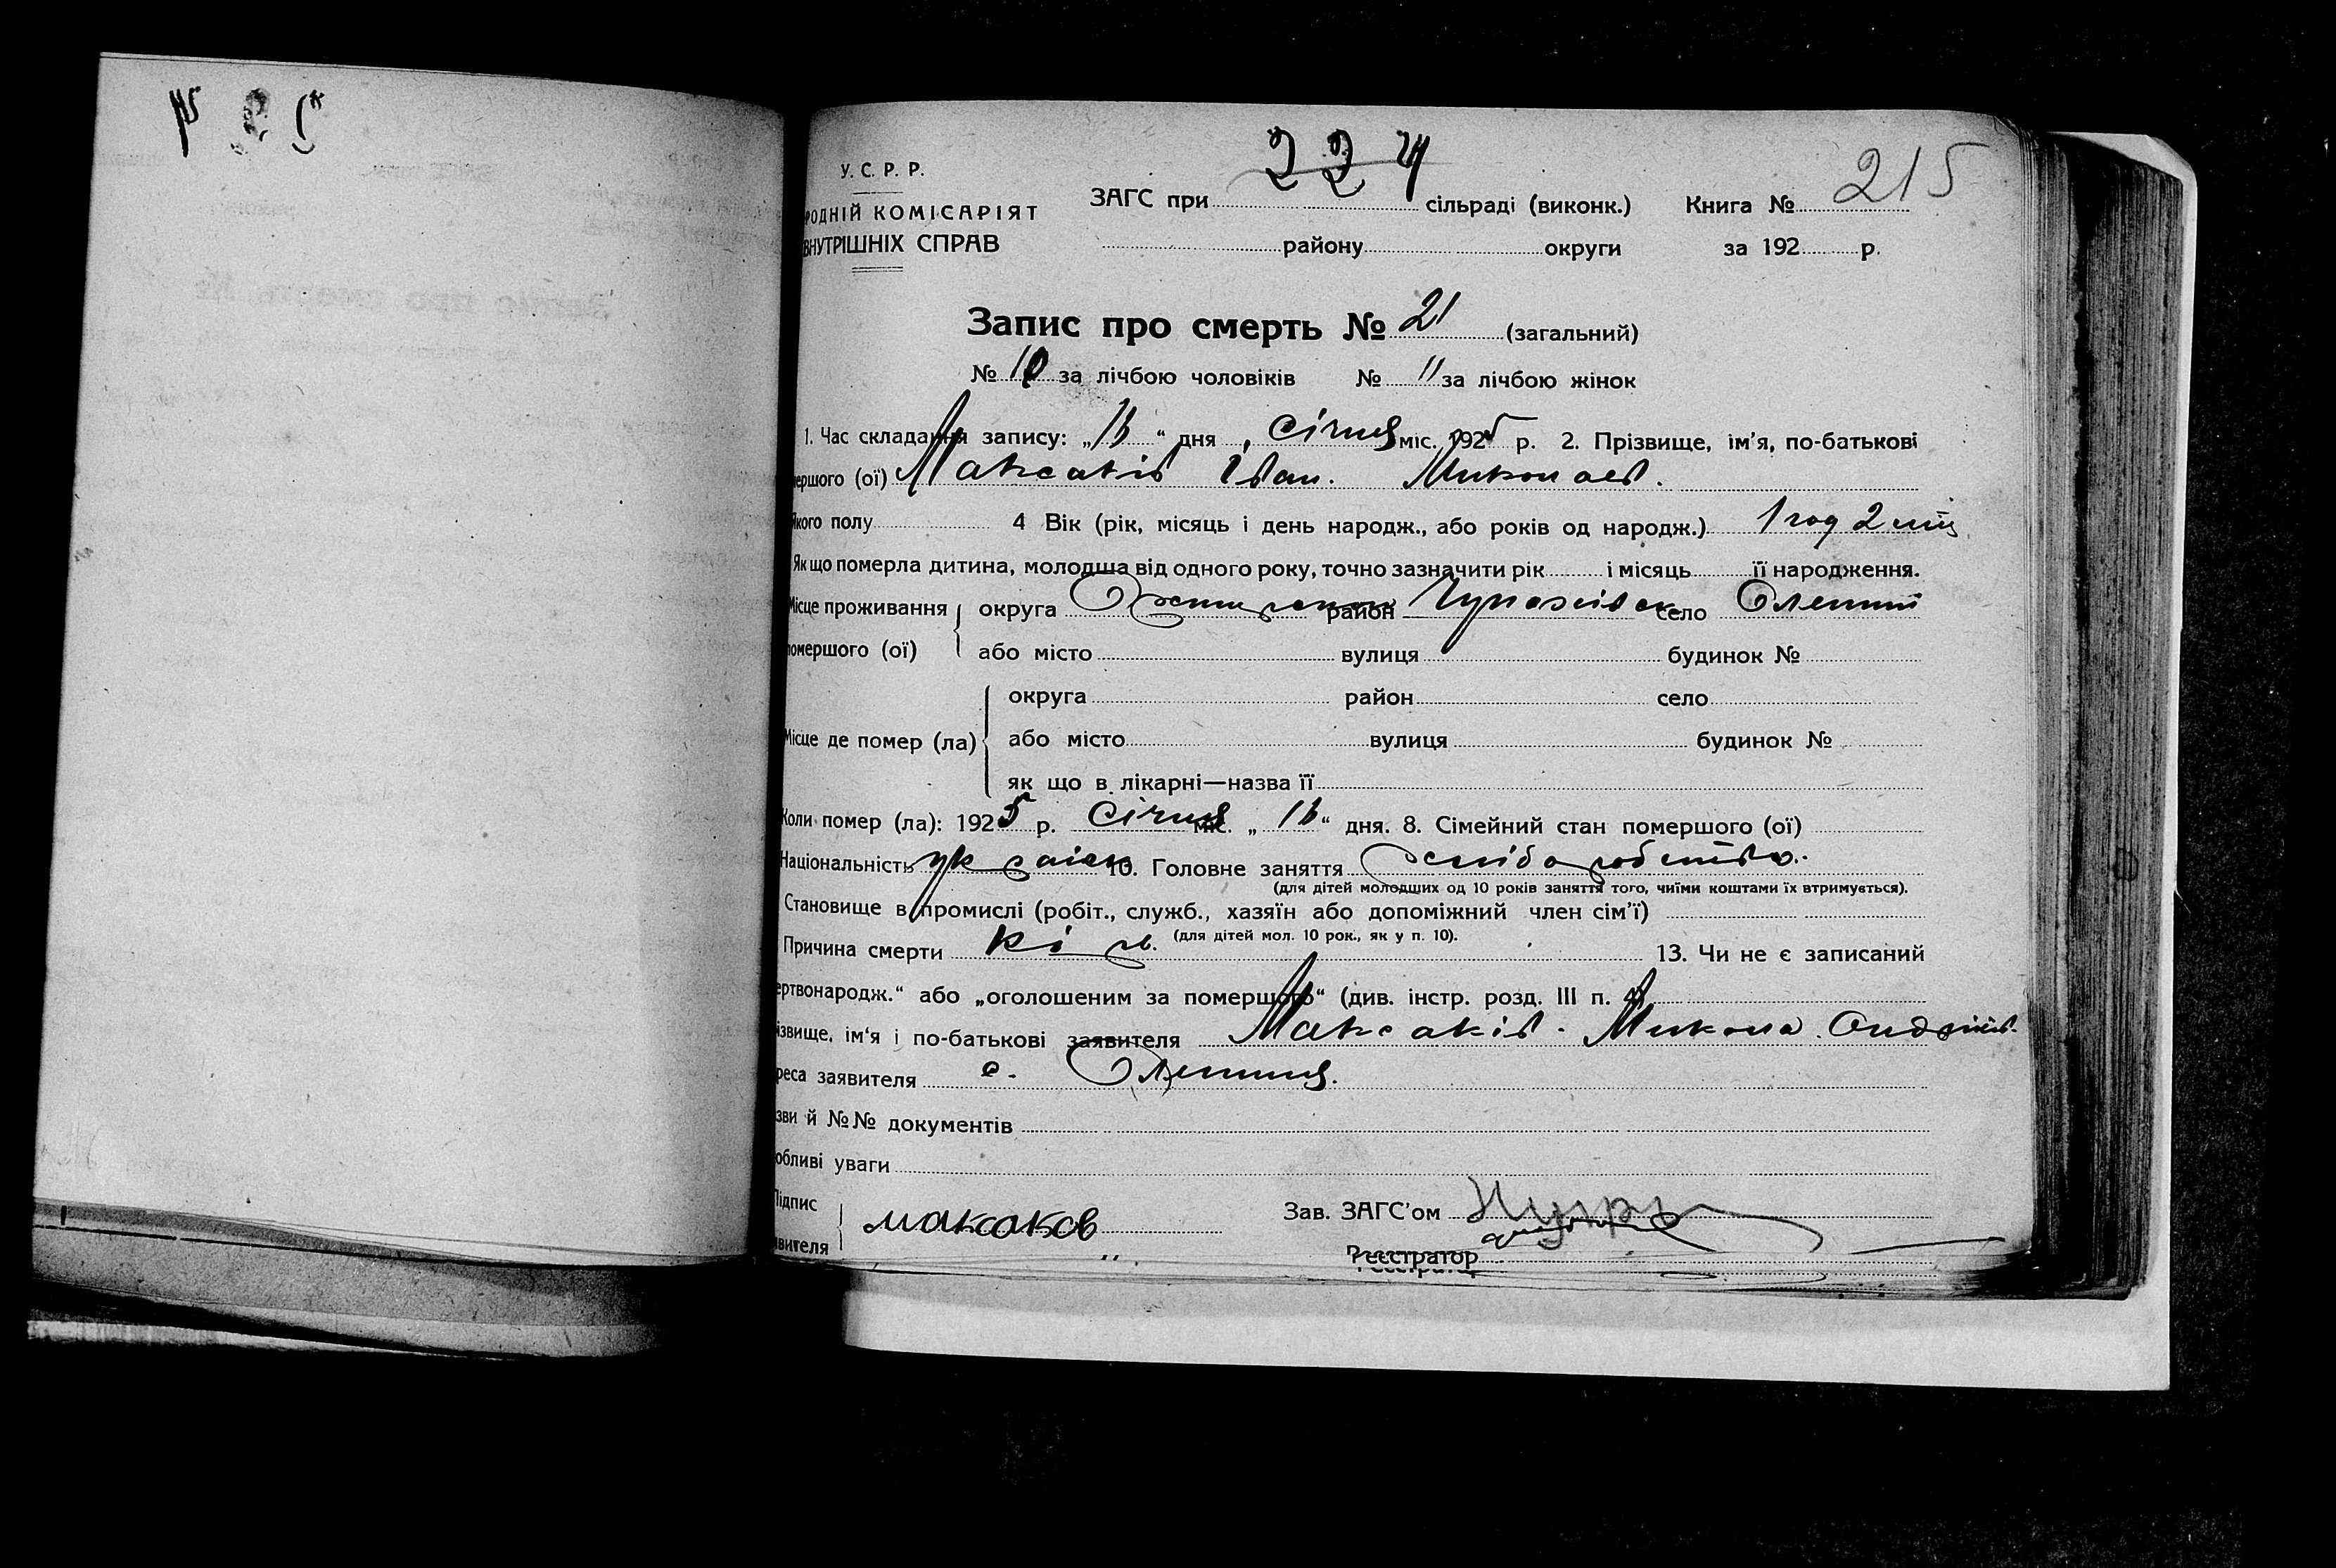 224
215
У. С. Р. Р.
РОДНІЙ КОМІСАРІЯТ
ВНУТРІШНІХ СПРАВ
ЗАГС при сільраді (виконк.) Книга №
району округи за 192 р.
Запис про смерть № 21 (загальний)
№ 10 за лічбою чоловіків № 11 за лічбою жінок
1. Час складання запису: „ “ дня січня міс. 1925 р. 2. Прізвище, ім’я, по-батькові
ершого (ої) Максаків Іван. Миколаєв.
Якого полу 4 Вік (рік, місяць і день народж., або років од народж.) 1 год 2 міс
Як що померла дитина, молодша від одного року, точно зазначити рік і місяць її народження.
Місце проживання округа район село
помершого (ої) або місто вулиця будинок №
округа район село
Місце де помер (ла) або місто вулиця будинок №
як що в лікарні—назва її
Коли помер (ла): 1925 р. січня міс. „ “ дня. 8. Сімейний стан помершого (ої)
Національність 10. Головне заняття
(для дітей молодших од 10 років заняття того, чиїми коштами їх втримується).
Становище в промислі (робіт., служб., хазяїн або допоміжний член сім’ї)
(для дітей мол. 10 рок., як у п. 10).
Причина смерти кір. 13. Чи не є записаний
ертвонародж.“ або „оголошеним за померщого“ (див. інстр. розд. III п.
ізвище, ім‘я і по-батькові заявителя Максаків. Микола Ондріїв.
реса заявителя с.
зви й №№ документів
обливі уваги
Підпис
явителя максаков
Зав. ЗАГС’ом
Реєстратор